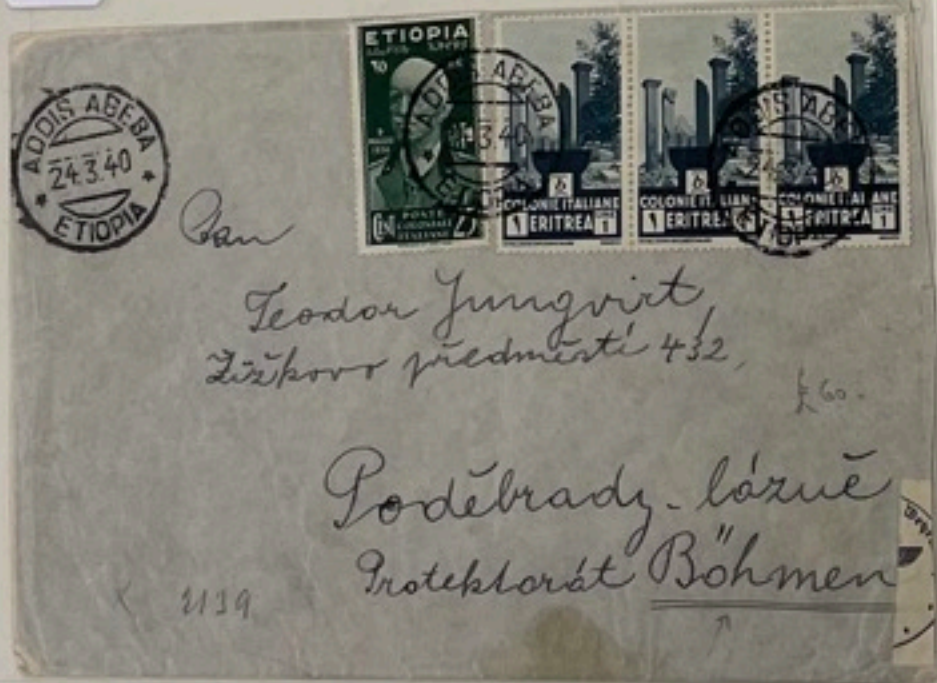 ADDIS ABEBA
24.3.40
ETIOPIA
ETIOPIA
POSTE
COLONIALI
ITALIANE
ADDIS ABEBA
3.40
COLONIE ITALIANE
ERITREA
1
COLONIE ITALIAN
ERITREA
COLONIE ITALIANE
ERITREA
1
Pan
Teodor Jungvirt,
Žižkovo předměstí 432,
60.
Poděbrady - lázně
Protektorát Böhmen
2139